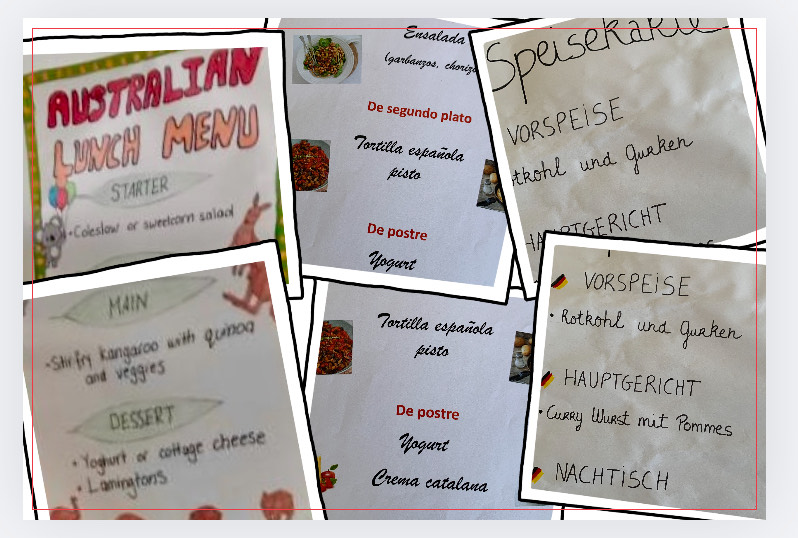 AUSTRALIAN
LUNCH MENU
STARTER
•Coleslaw or sweetcorn salad
Ensalada
(garbanzos,
De segundo plato
Tortilla española
pisto
De postre
Yogurt
Speisekarte
VORSPEISE
und Gurken
HAUPTGERICHT
MAIN
-Stirfry kangaroo with quinoa
and veggies
DESSERT
• Yoghurt or cottage cheese
• Lamingtons
Tortilla española
pisto
De postre
Yogurt
Crema catalana
VORSPEISE
• Rotkohl und Gurken
HAUPTGERICHT
• Curry Wurst mit Pommes
NACHTISCH